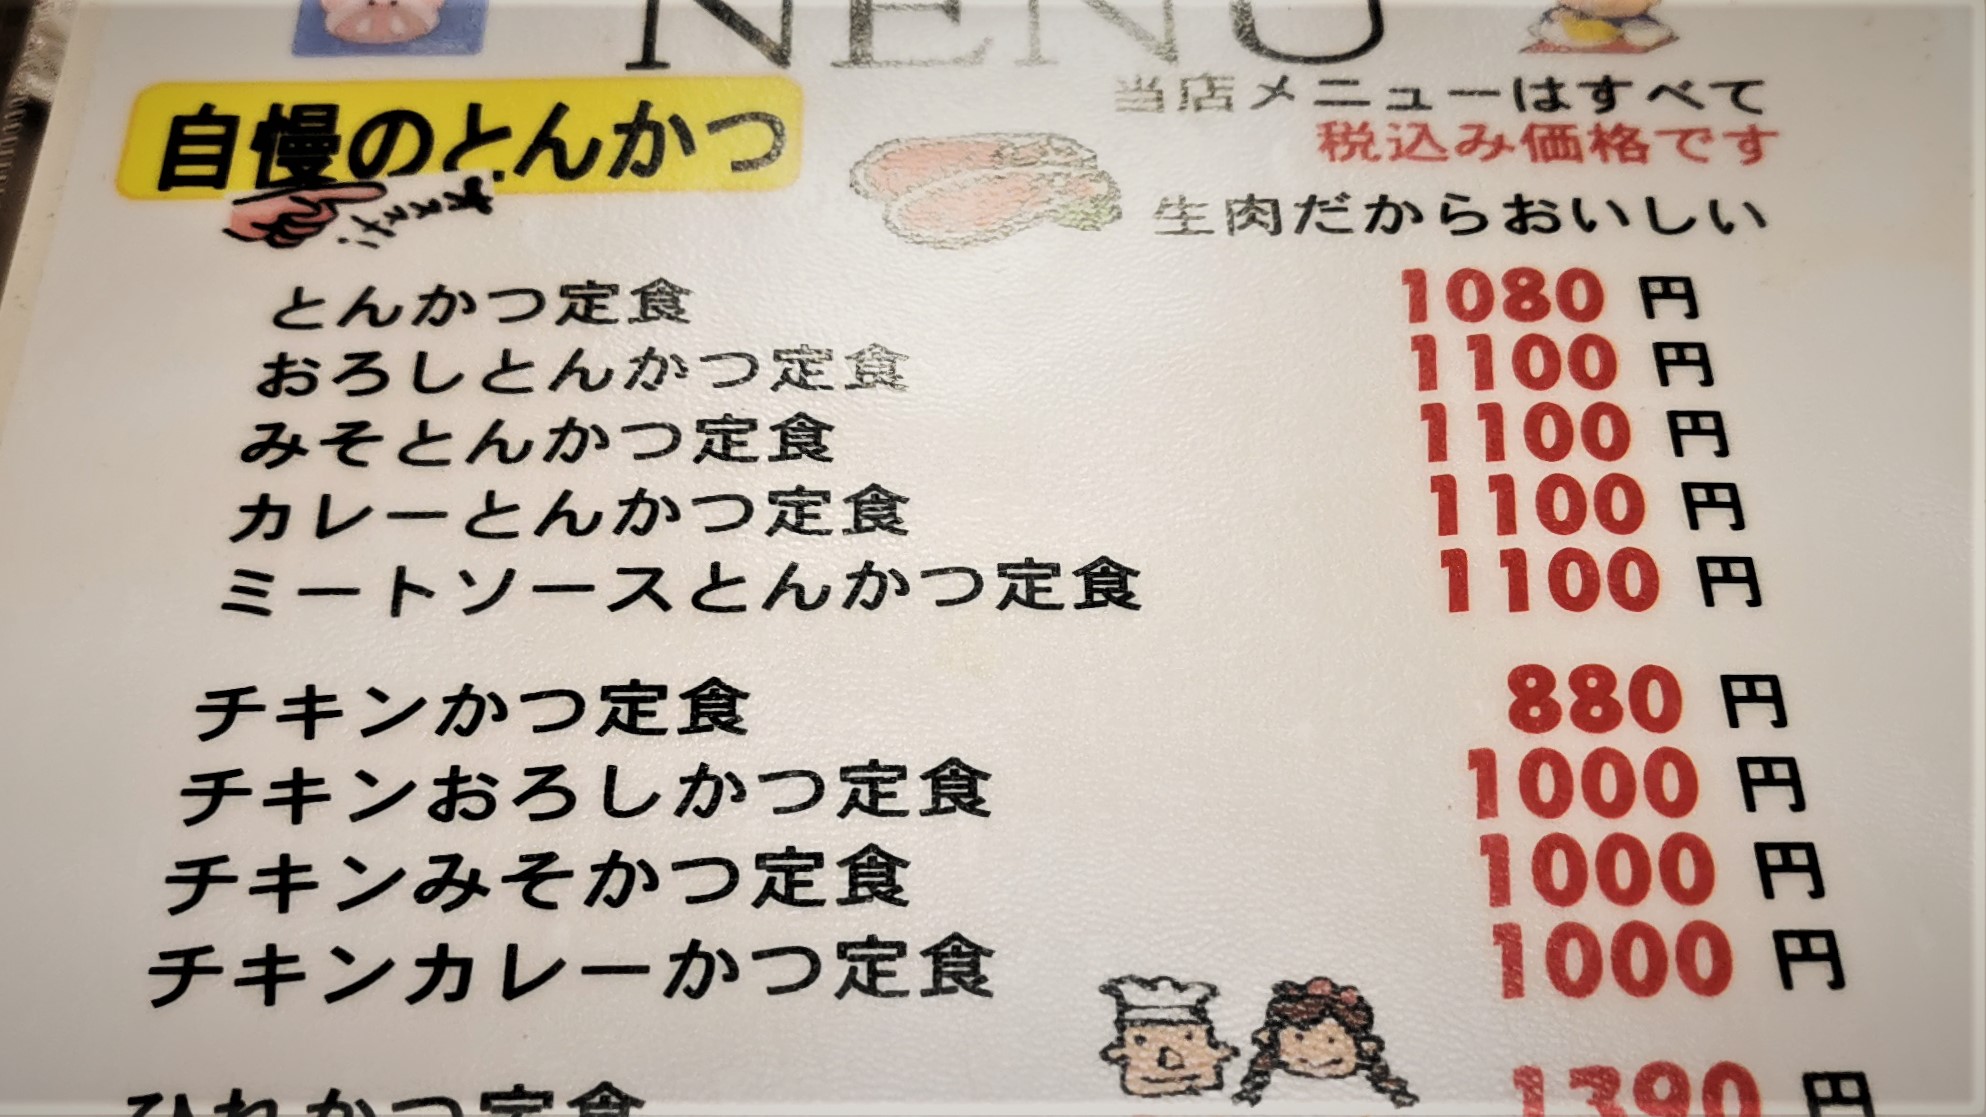 MENU
自慢のとんかつ
オススメ!
当店メニューはすべて
税込み価格です
生肉だからおいしい
とんかつ定食 1080 円
おろしとんかつ定食 1100 円
みそとんかつ定食 1100 円
カレーとんかつ定食 1100 円
ミートソースとんかつ定食 1100 円
チキンかつ定食 880 円
チキンおろしかつ定食 1000 円
チキンみそかつ定食 1000 円
チキンカレーかつ定食 1000 円
ひれかつ定食 1390 円